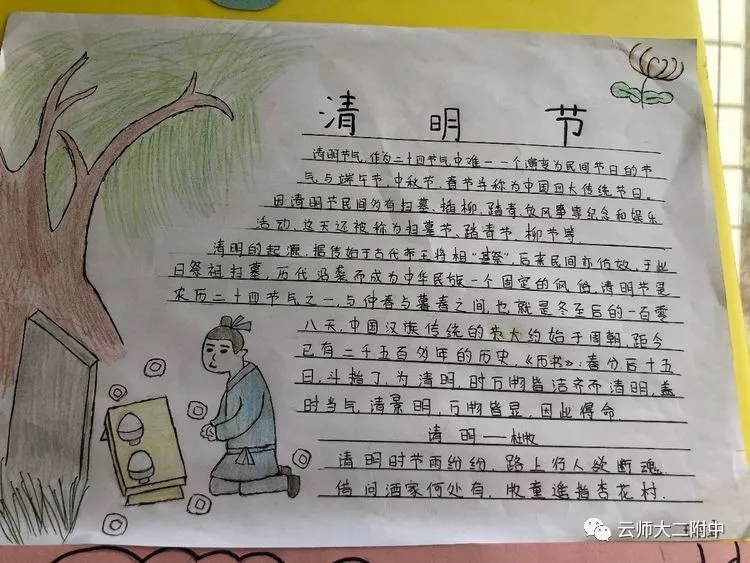 清明节
清明节气,作为二十四节气中唯一一个演变为民间节日的节
气与端午节、中秋节、春节等称为中国四大传统节日。
因清明节民间多有扫墓、插柳、踏青、放风筝等纪念和娱乐
活动,这天还被称为扫墓节、踏青节、柳节等
清明的起源,据传始于古代帝王将相"墓祭"后来民间亦仿效,于此
日祭祖扫墓,历代沿袭而成为中华民族一个固定的风俗,清明节是
农历二十四节气之一,与仲春与暮春之间,也就是冬至后的一百零
八天,中国汉族传统的节大约始于周朝,距今
已有二千五百多年的历史,《历书》:春分后十五
日,斗指丁,为清明,时万物皆洁齐而清明,盖
时当气清景明,万物皆显,因此得命
清明——杜牧
清明时节雨纷纷,路上行人欲断魂
借问酒家何处有,牧童遥指杏花村.
云师大二附中